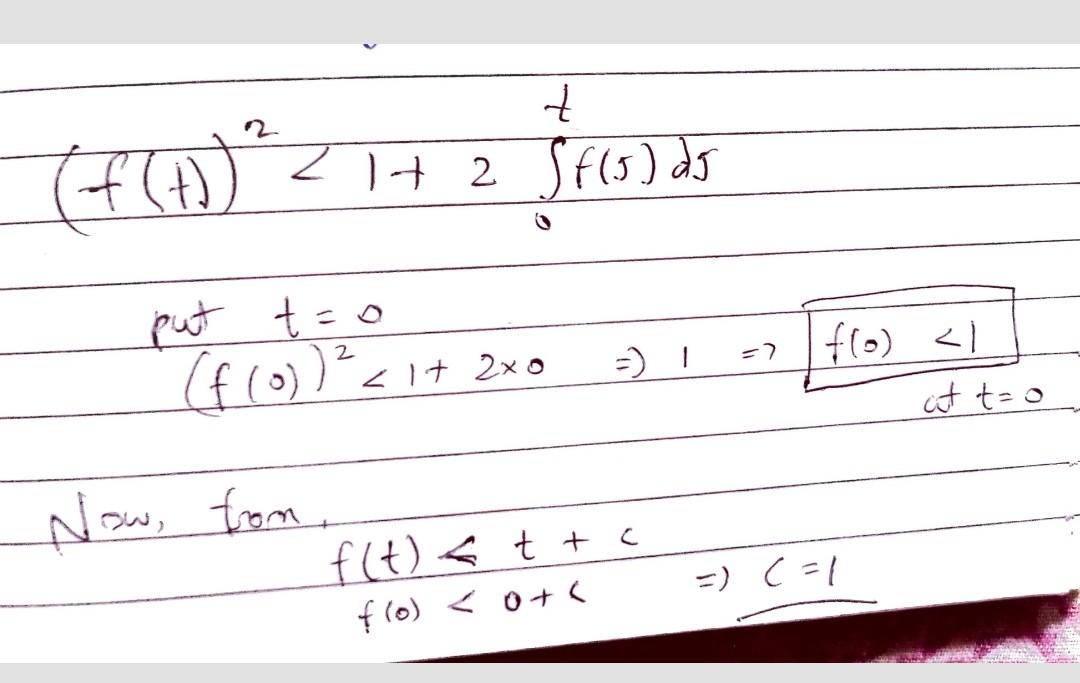 (f(t))² < 1 + 2 ∫₀ᵗ f(s) ds
put t = 0
(f(0))² < 1 + 2×0 => 1 => f(0) < 1
at t = 0
Now, from,
f(t) < t + c
f(0) < 0 + c => c = 1